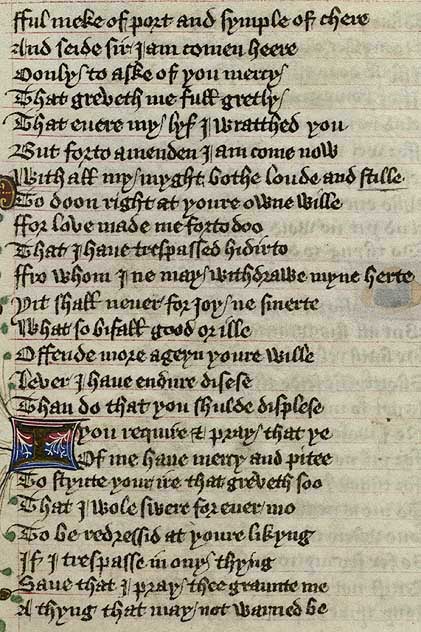 fful meke of port and symple of chere
And seide sir I am comen heere
Oonly to aske of you mercy
That greveth me full gretly
That euere my lyf I wratthed you
But forto amenden I am come now
With all my myght bothe loude and stille
To doon right at youre owne wille
ffor love made me forto doo
That I haue trespassed hidirto
ffro whom I ne may withdrawe myne herte
Yit shall neuer for Joy ne smerte
What so bifall good or ille
Offende more ageyn youre wille
Lever I haue endure disese
Than do that you shulde displese
I you require & pray that ye
Of me haue mercy and pitee
To stynte youre ire that greveth soo
That I wole swere for euer mo
To be redressid at youre likyng
If I trespasse in ony thyng
Saue that I pray thee graunte me
A thyng that may not warned be